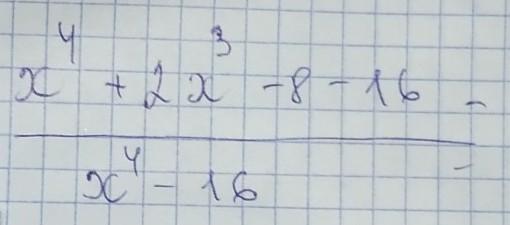 x⁴ + 2x³ - 8 - 16 =
x⁴ - 16